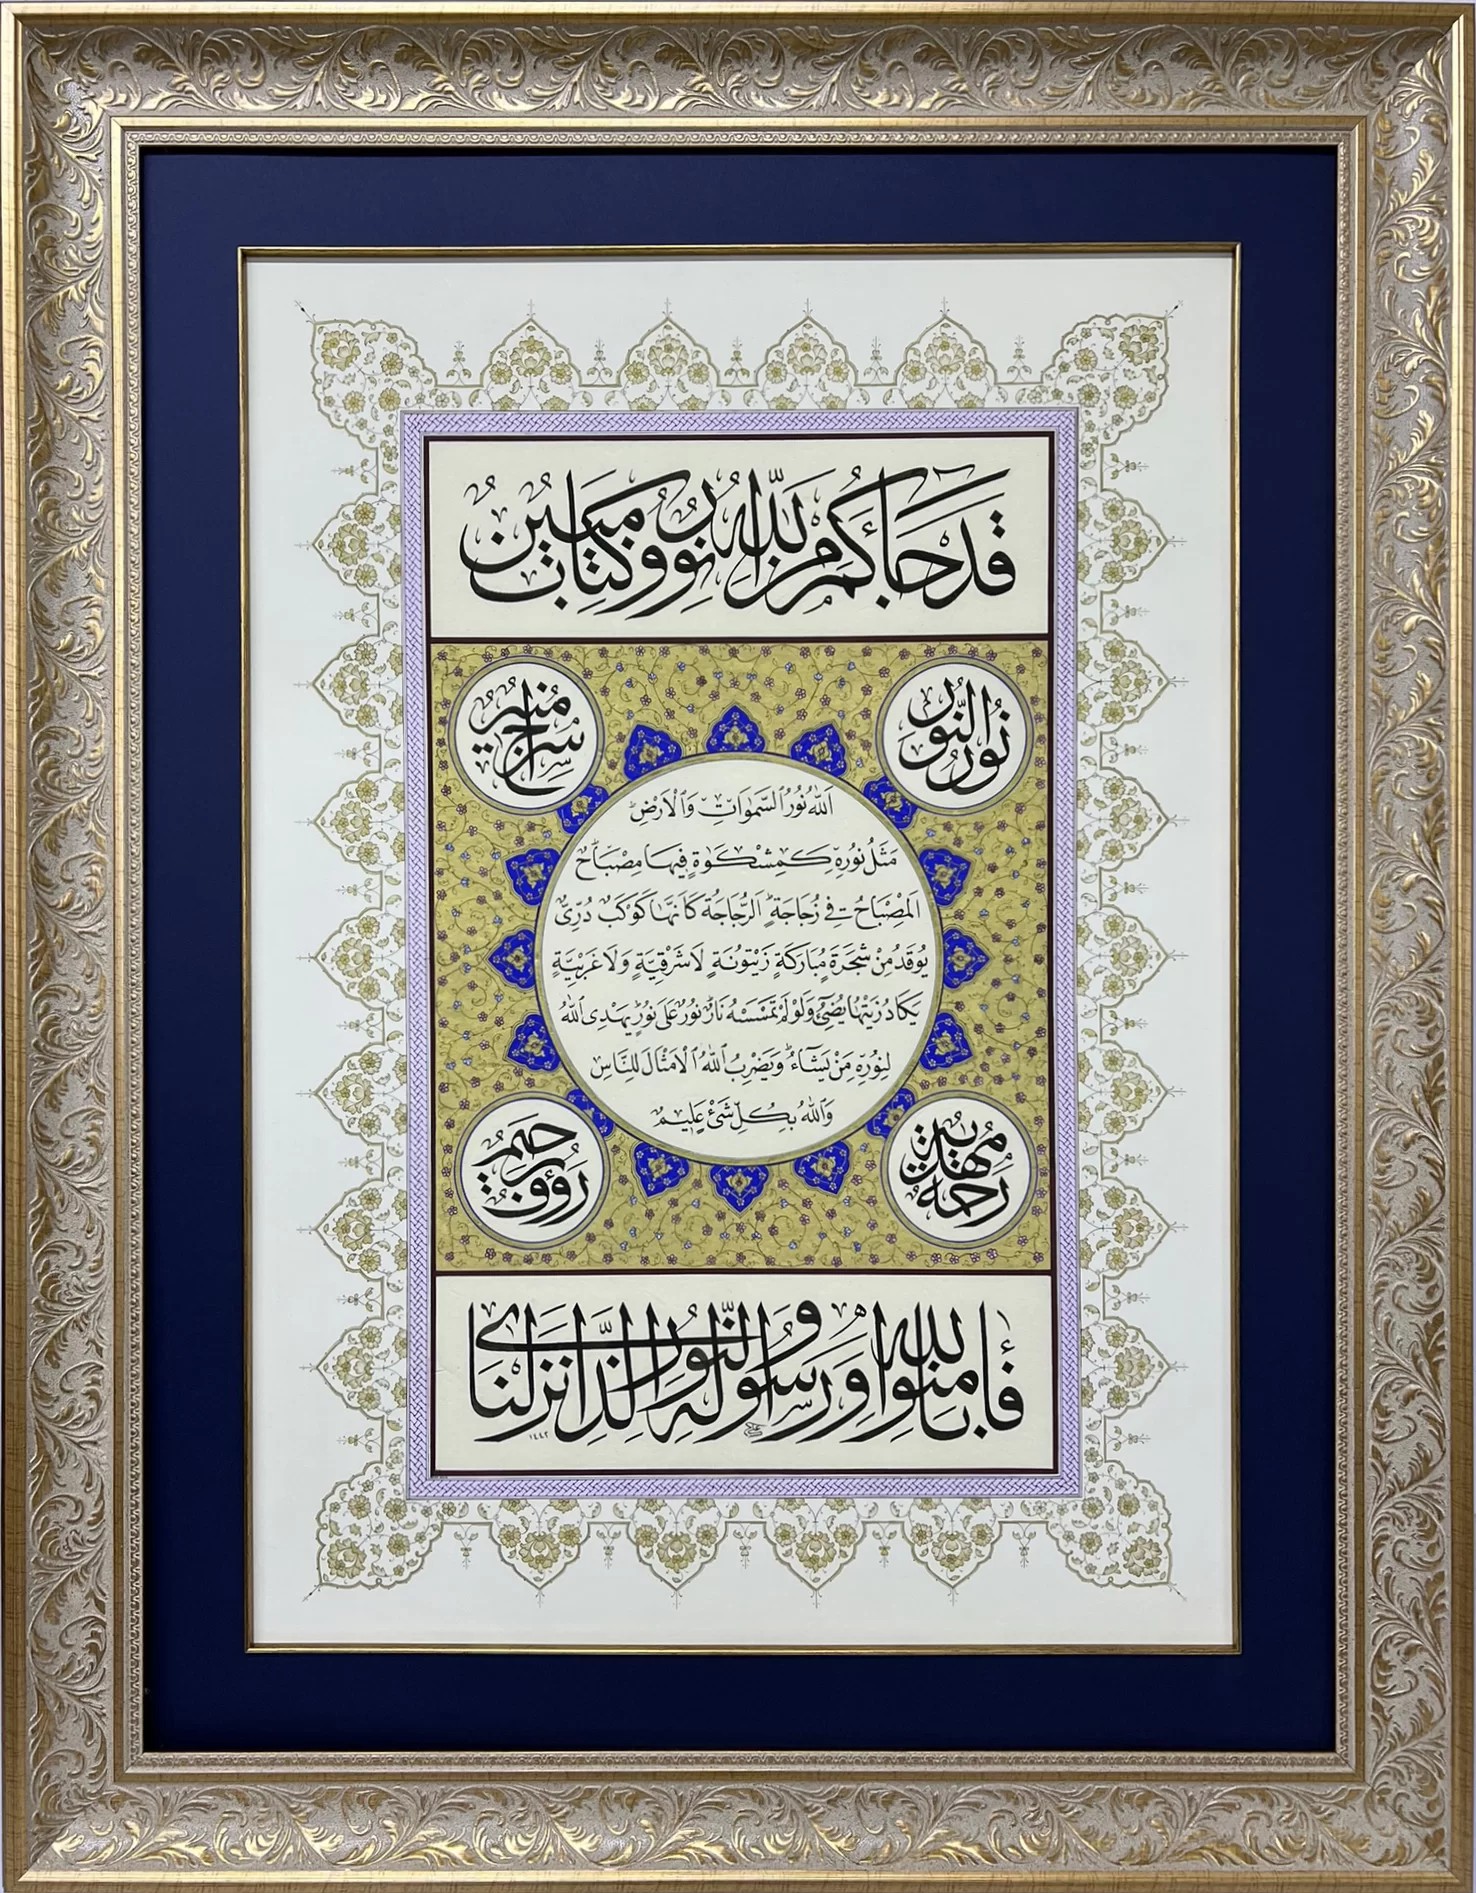 قَدْ جَاءَكُمْ مِنَ اللّٰهِ نُورٌ وَكِتَابٌ مُبِينٌ
نُورُ النُّورِ
سِرَاجٌ مُنِيرٌ
اَللّٰهُ نُورُ السَّمٰوَاتِ وَالْاَرْضِ
مَثَلُ نُورِهِ كَمِشْكٰوةٍ فِيهَا مِصْبَاحٌ
اَلْمِصْبَاحُ فِي زُجَاجَةٍ اَلزُّجَاجَةُ كَاَنَّهَا كَوْكَبٌ دُرِّيٌّ
يُوقَدُ مِنْ شَجَرَةٍ مُبَارَكَةٍ زَيْتُونَةٍ لَا شَرْقِيَّةٍ وَلَا غَرْبِيَّةٍ
يَكَادُ زَيْتُهَا يُضِيءُ وَلَوْ لَمْ تَمْسَسْهُ نَارٌ نُورٌ عَلٰى نُورٍ يَهْدِي اللّٰهُ
لِنُورِهِ مَنْ يَشَاءُ وَيَضْرِبُ اللّٰهُ الْاَمْثَالَ لِلنَّاسِ
وَاللّٰهُ بِكُلِّ شَيْءٍ عَلِيمٌ
رَحْمَةٌ مُهْدِيَةٌ
رَؤُفٌ رَحِيمٌ
فَاٰمِنُوا بِاللّٰهِ وَرَسُولِهِ وَالنُّورِ الَّذِي اَنْزَلْنَا
١٤٤٢